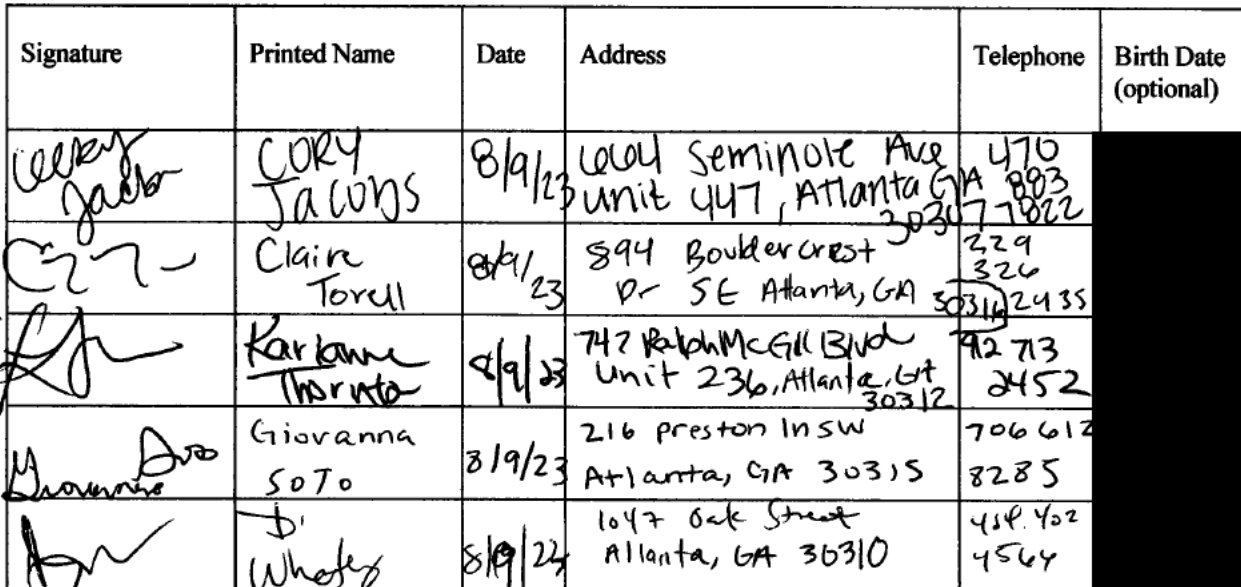 Signature
Printed Name
Date
Address
Telephone
Birth Date
(optional)
CORY
Jacobs
8/9/23
664 Seminole Ave
unit 447, Atlanta GA
30307
470
883
7822
Claire
Torell
8/9/
23
894 Bouldercrest
Dr SE Atlanta, GA
30316
229
326
2435
Karianne
Thornton
8/9/23
747 Ralph McGill Blvd
Unit 236, Atlanta, GA
30312
912 713
2452
Giovanna
SOTO
8/9/23
216 preston ln SW
Atlanta, GA 30315
706 612
8285
D.
8/9/23
1047 Oak Street
Atlanta, GA 30310
404.402
4564